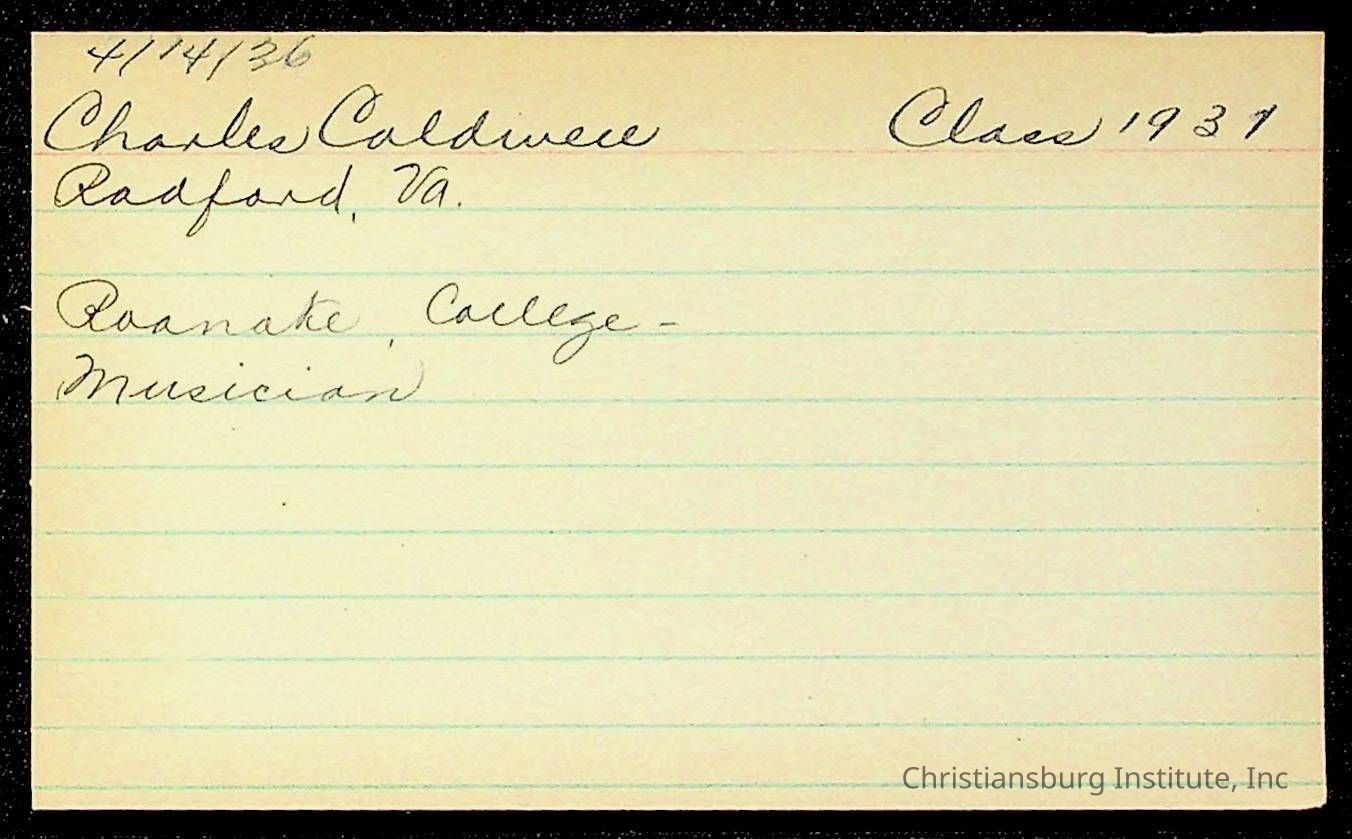 4/14/36
Charles Caldwell Class 1937
Radford, Va.
Roanoke, College -
Musician
Christiansburg Institute, Inc